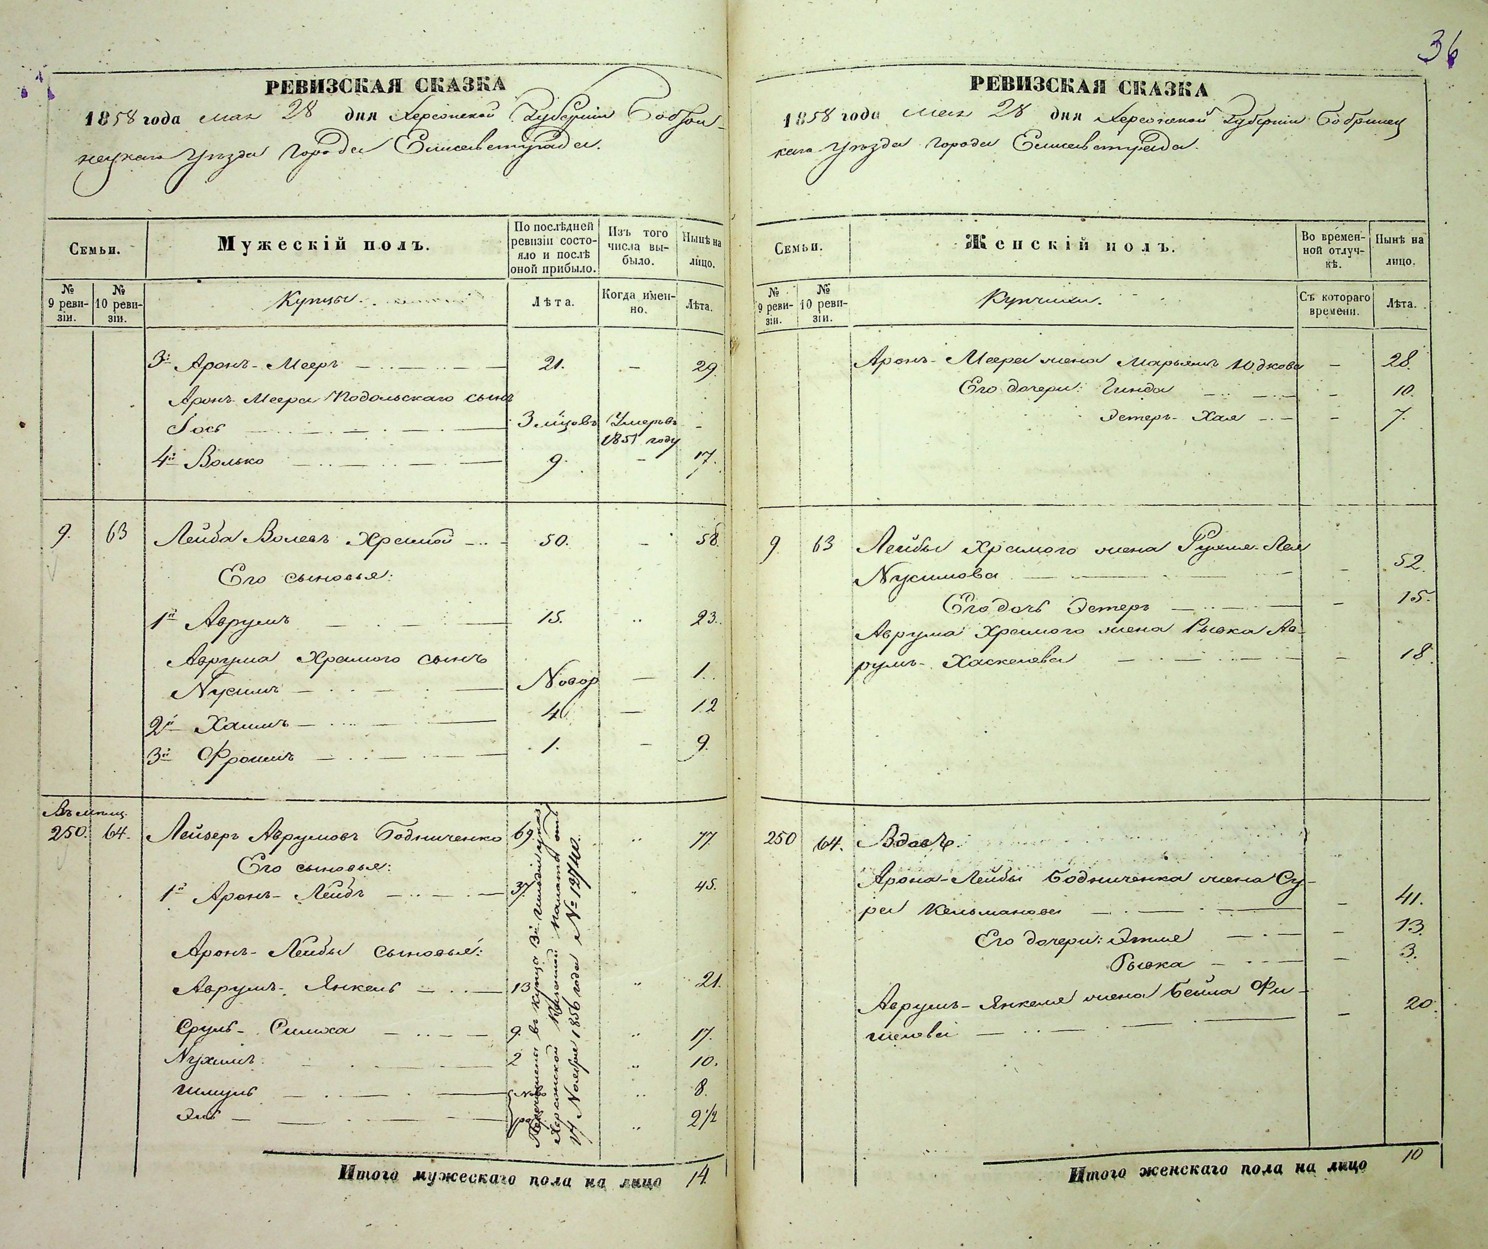 36
РЕВИЗСКАЯ СКАЗКА
1858 года мая 28 дня Херсонской Губерніи Бобри-
нецкаго Уѣзда города Елисаветграда.
Семьи.
Мужескій полъ.
По послѣдней ревизіи состо-
яло и послѣ оной прибыло.
Изъ того числа вы-
было.
Нынѣ на лицо.
№ 9 реви-
зіи.
№ 10 реви-
зіи.
Купцы.
Лѣта.
Когда имен-
но.
Лѣта.
3й Аронъ-Мееръ 21. — 29.
Аронъ-Меера Подольскаго сынъ
Іось 3 мѣсяцовъ Умеръ въ 1851 году —
4й Волько 9. — 17.
9. 63 Лейба Волевъ Хромой 50. — 58.
Его сыновья:
1й Аврумъ 15. 23.
Аврума Хромого сынъ
Нусимъ Новор — 1.
2й Хаимъ 4 — 12
3й Фроимъ 1. — 9.
Въ мѣщ.
250. 64. Лейзеръ Аврумовъ Бодниченко 69. 77.
Его сыновья:
1й Аронъ-Лейбъ 37. 45.
Аронъ-Лейбы сыновья:
Аврумъ-Янкель 13 21.
Сруль-Симха 9. 17.
Нухимъ 2 10.
Шмуль 8.
Эль 2 1/2
Перечислены въ купцы 3й гильдіи указ.
Херсонской Казенной Палаты отъ
17 Ноября 1856 года № 12740.
Итого мужескаго пола на лицо 14
РЕВИЗСКАЯ СКАЗКА
1858 года мая 28 дня Херсонской Губерніи Бобринец
каго Уѣзда города Елисаветграда.
Семьи.
Женскій полъ.
Во времен-
ной отлуч-
кѣ.
Нынѣ на лицо.
№ 9 реви-
зіи.
№ 10 реви-
зіи.
Купчихи.
Съ котораго времени.
Лѣта.
Аронъ-Меера жена Марьямъ Юдкова — 28.
Его дочери: Гинда 10.
Эстеръ-Хая — 7.
9. 63 Лейбы Хромого жена Рухля-Лея
Нусимова — 52.
Его дочь Эстеръ — 15.
Аврума Хромого жена Рывка Ав-
румъ-Хаскелева — 18.
250 64. Вдовъ.
Арона-Лейбы Бодниченка жена Су-
ра Кельманова — 41.
Его дочери: Этля — 13.
Рывка — 3.
Аврумъ-Янкеля жена Бейла Фи-
шелова — 20.
Итого женскаго пола на лицо 10